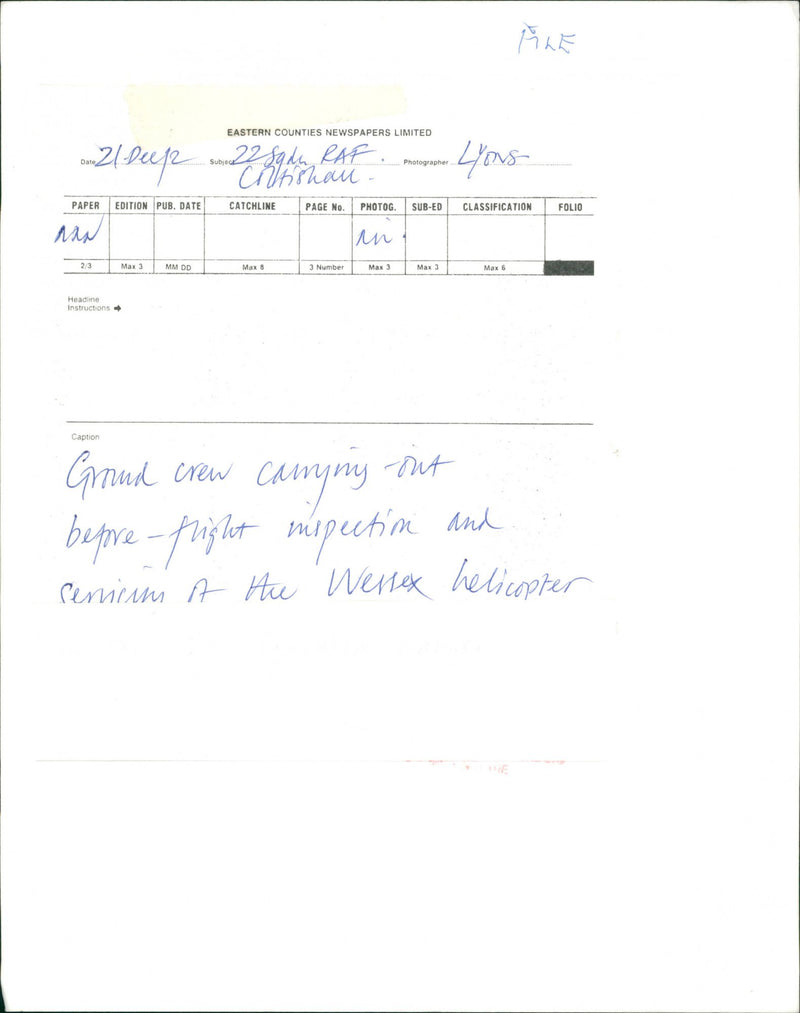 FILE
EASTERN COUNTIES NEWSPAPERS LIMITED
Date 21 Subject 22 Sqdn RAF. Photographer Lyons
Coltishall.
PAPER EDITION PUB. DATE CATCHLINE PAGE No. PHOTOG. SUB-ED CLASSIFICATION FOLIO
2/3 Max 3 MM DD Max 8 3 Number Max 3 Max 3 Max 6
Headline
Instructions →
Caption
Ground crew carrying out
before-flight inspection and
servicing of the Wessex helicopter